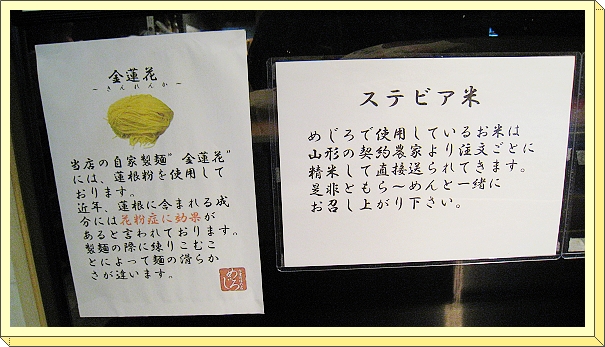 金蓮花
－きんれんか－
当店の自家製麺"金蓮花"
には、蓮根粉を使用して
おります。
近年、蓮根に含まれる成
分には花粉症に効果が
あると言われております。
製麺の際に練りこむこ
とによって麺の滑らか
さが違います。
めじろ
ステビア米
めじろで使用しているお米は
山形の契約農家より注文ごとに
精米して直接送られてきます。
是非ともら～めんと一緒に
お召し上がり下さい。